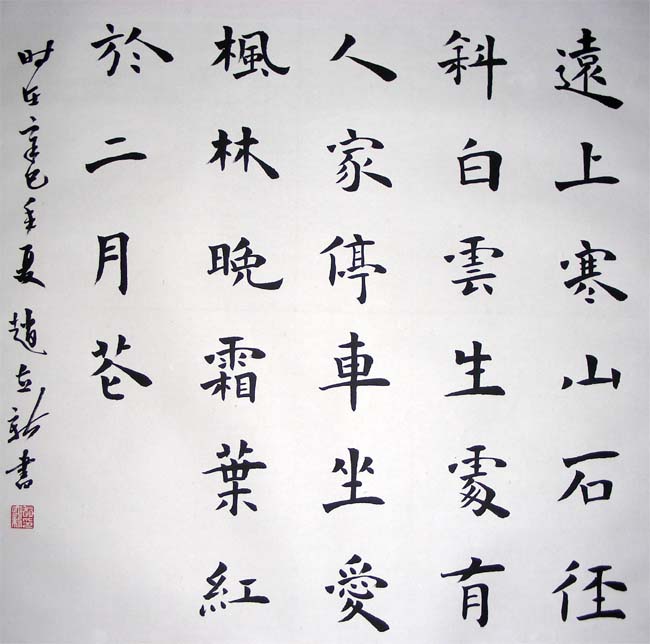 遠上寒山石徑
斜白雲生處有
人家停車坐愛
楓林晚霜葉紅
於二月花
时在辛巳年夏趙立新書